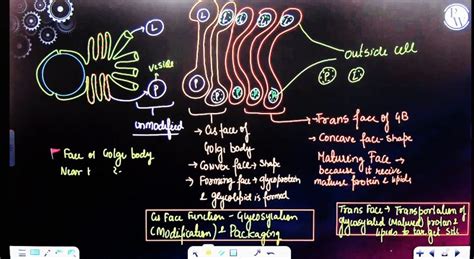 L
L L L L L
outside cell
vesicle
P
P P P P P
P L
unmodified
→ Cis face of
Golgi body
→ Convex face → shape
→ Forming face → glycoprotein
& glycolipid is formed
→ Trans face of GB
→ Concave face - shape
Maturing Face
→ because it receive
mature protein & lipids
Face of Golgi body
Near t
Cis Face Function - Glycosylation
(Modification) & Packaging
Trans Face → Transportation of
glycosylated (matured) protein &
lipids to target site